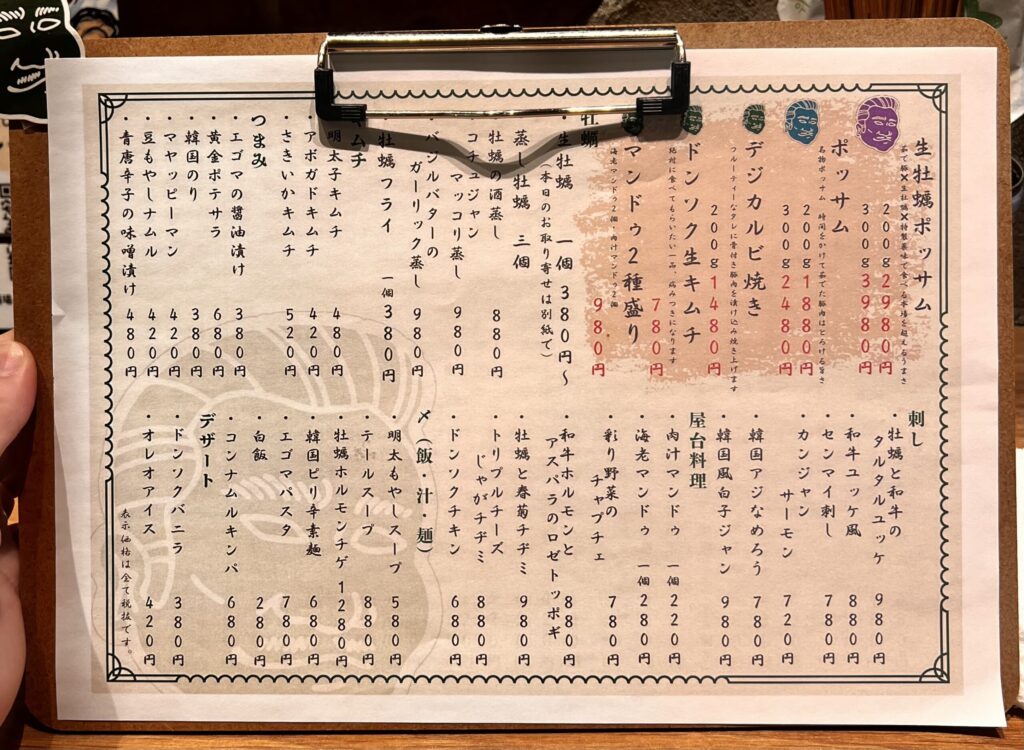 生牡蠣ポッサム
茹で豚×生牡蠣×特製薬味で食べる本場を超えるうまさ
200g 2980円
300g 3980円
ポッサム
名物ポッサム 時間をかけて茹でた豚肉はとろける旨さ
200g 1880円
300g 2480円
デジカルビ焼き
フルーティーなタレに骨付き豚肉を漬け込み焼き上げます
200g 1480円
ドンソク生キムチ
絶対に食べてもらいたい一品、病みつきになります
780円
マンドゥ2種盛り
海老マンドゥ2個・肉汁マンドゥ2個
980円
牡蠣
・生牡蠣 一個 380円〜
(本日のお取り寄せは別紙で)
蒸し牡蠣 三個
牡蠣の酒蒸し 880円
コチュジャン
マッコリ蒸し 980円
バンルバターの
ガーリック蒸し 980円
牡蠣フライ 一個 380円
キムチ
明太子キムチ 480円
・アボガドキムチ 420円
・さきいかキムチ 520円
つまみ
・エゴマの醤油漬け 380円
・黄金ポテサラ 680円
・韓国のり 380円
・マヤッピーマン 420円
・豆もやしナムル 420円
・青唐辛子の味噌漬け 480円
刺し
・牡蠣と和牛の
タルタルユッケ 980円
・和牛ユッケ風 880円
・センマイ刺し 780円
・カンジャン
サーモン 720円
・韓国アジなめろう 780円
・韓国風白子ジャン 980円
屋台料理
・肉汁マンドゥ 一個 220円
・海老マンドゥ 一個 280円
・彩り野菜の
チャプチェ 780円
・和牛ホルモンと
アスパラのロゼトッポギ 880円
・牡蠣と春菊チヂミ 980円
・トリプルチーズ
じゃがチヂミ 880円
・ドンソクチキン 680円
〆(飯・汁・麺)
・明太もやしスープ 580円
・テールスープ 880円
・牡蠣ホルモンチゲ 1280円
・韓国ピリ辛素麺 680円
・エゴマパスタ 780円
・白飯 280円
・コンナムルキンパ 680円
デザート
・ドンソクバニラ 380円
・オレオアイス 420円
表示価格は全て税抜です。